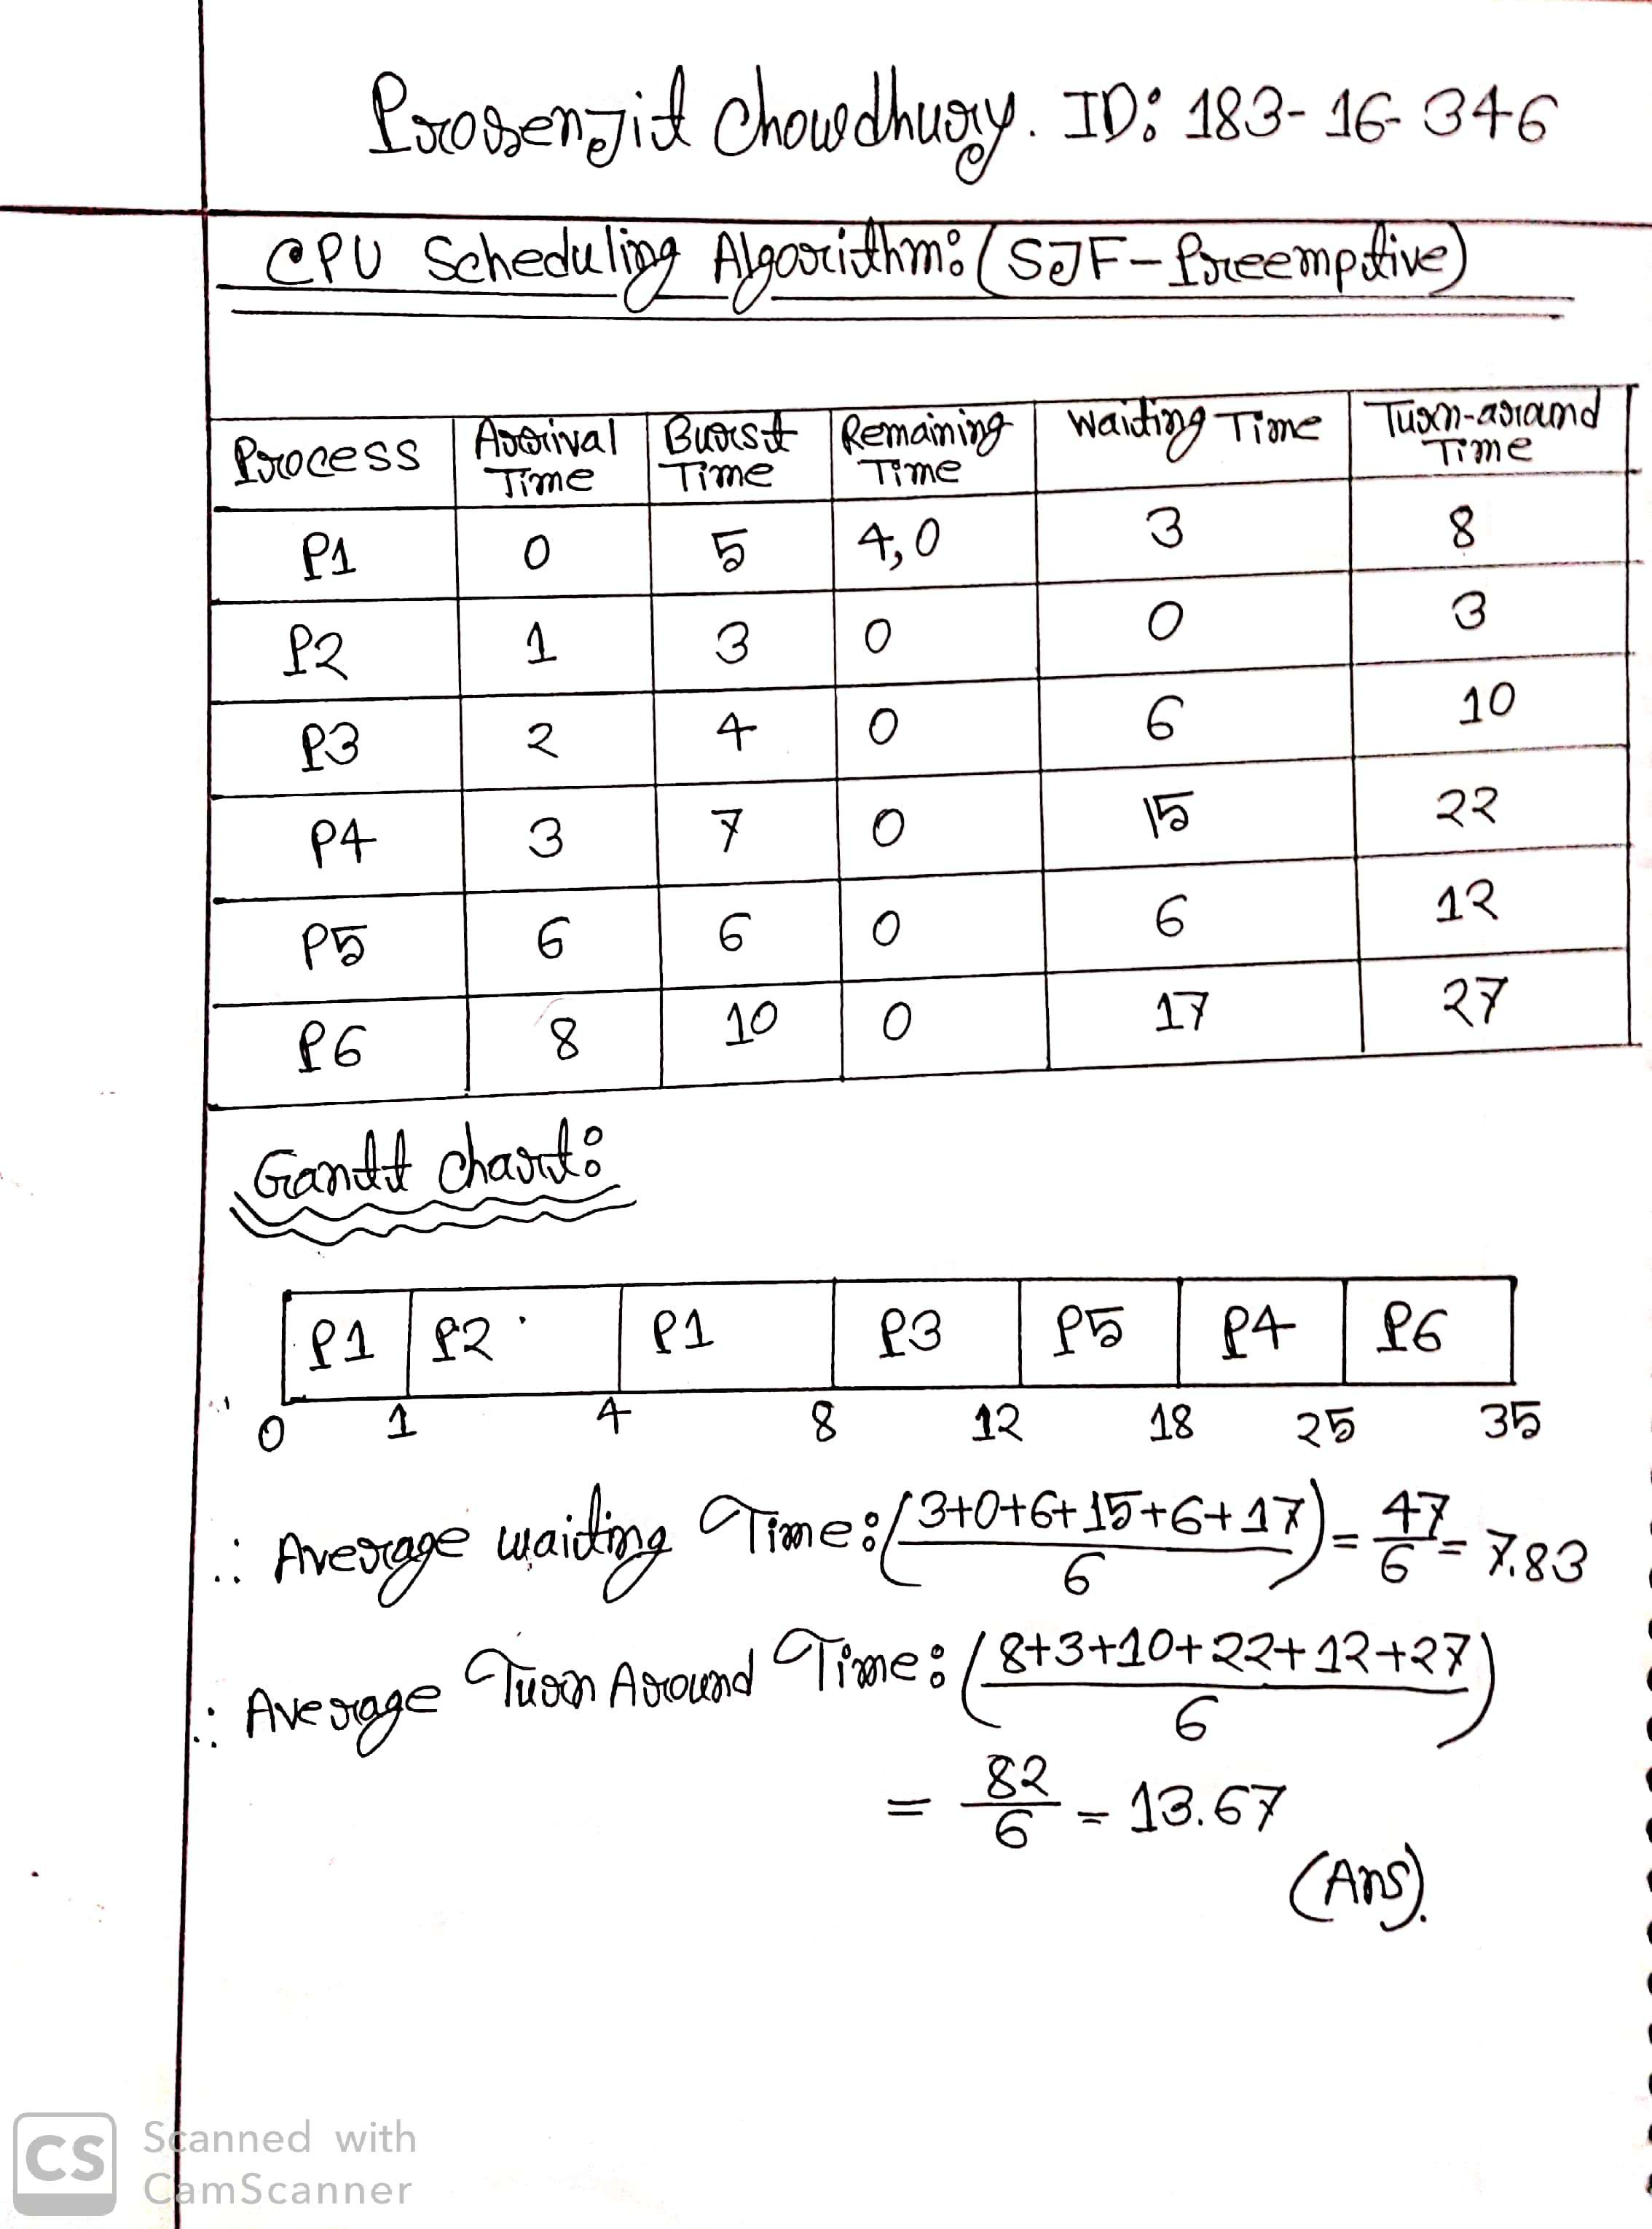 Prosenjit Chowdhury. ID: 183-16-346
CPU Scheduling Algorithm: (SJF-Preemptive)
Process | Arrival Time | Burst Time | Remaining Time | Waiting Time | Turn-araund Time
P1 | 0 | 5 | 4,0 | 3 | 8
P2 | 1 | 3 | 0 | 0 | 3
P3 | 2 | 4 | 0 | 6 | 10
P4 | 3 | 7 | 0 | 15 | 22
P5 | 6 | 6 | 0 | 6 | 12
P6 | 8 | 10 | 0 | 17 | 27
Gantt chart:
P1 | P2 | P1 | P3 | P5 | P4 | P6
0 1 4 8 12 18 25 35
∴ Average waiting Time: (3+0+6+15+6+17)/6 = 47/6 = 7.83
∴ Average Turn Around Time: (8+3+10+22+12+27)/6
= 82/6 = 13.67
(Ans).
CS Scanned with
CamScanner